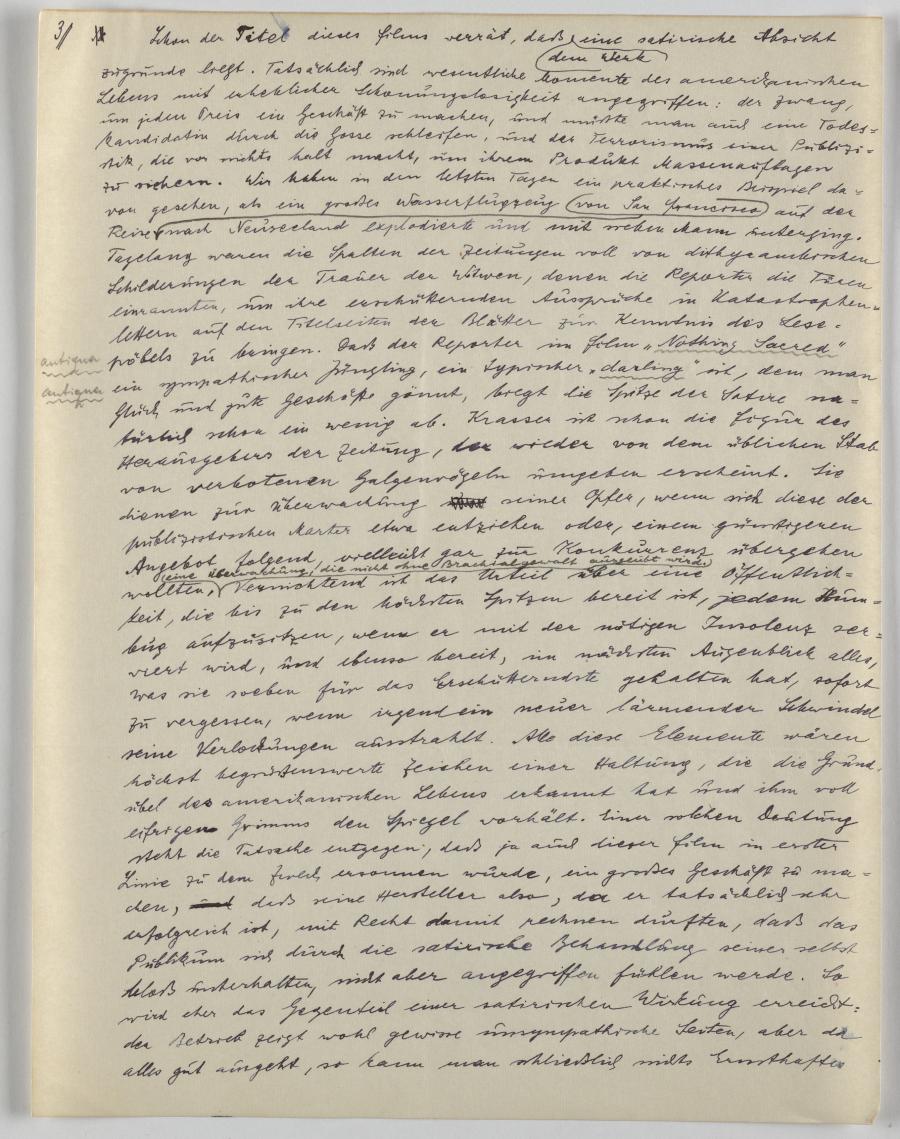 3/ Schon der Titel dieses Films verrät, daß eine satirische Absicht
dem Werk
zugrunde liegt. Tatsächlich sind wesentliche Momente des amerikanischen
Lebens mit erheblicher Schonungslosigkeit angegriffen: der Zwang,
um jeden Preis ein Geschäft zu machen, und müßte man auch eine Todes=
kandidatin durch die Gosse schleifen, und der Terrorismus einer Publizi=
stik, die vor nichts halt macht, um ihrem Produkt Massenauflagen
zu sichern. Wir haben in den letzten Tagen ein praktisches Beispiel da=
von gesehen, als ein großes Wasserflugzeug (von San Francisco) auf der
Reise nach Neuseeland explodierte und mit sieben Mann unterging.
Tagelang waren die Spalten der Zeitungen voll von dithyrambischen
Schilderungen der Trauer der Witwen, denen die Reporter die Türen
einrannten, um ihre erschütternden Aussprüche in Katastrophen=
lettern auf den Titelseiten der Blätter zur Kenntnis des Lese=
pöbels zu bringen. Daß der Reporter im Film „Nothing Sacred"
antiqua
ein sympathischer Jüngling, ein typischer „darling" ist, dem man
antiqua
Glück und gute Geschäfte gönnt, biegt die Spitze der Satire na=
türlich schon ein wenig ab. Krasser ist schon die Figur des
Herausgebers der Zeitung, der wieder von dem üblichen Stab
von verbotenen Galgenvögeln umgeben erscheint. Sie
dienen zur Überwachung seiner Opfer, wenn sich diese der
publizistischen Marter etwa entziehen oder, einem günstigeren
Angebot folgend, vielleicht gar zur Konkurrenz übergehen
(eine Überwachung, die nicht ohne Brachialgewalt ausgeübt wird)
wollten, Vernichtend ist das Urteil über eine Öffentlich=
keit, die bis zu den höchsten Spitzen bereit ist, jedem Hum=
bug aufzusitzen, wenn er mit der nötigen Insolenz ser=
viert wird, und ebenso bereit, im nächsten Augenblick alles,
was sie soeben für das Erschütterndste gehalten hat, sofort
zu vergessen, wenn irgend ein neuer lärmender Schwindel
seine Verlockungen ausstrahlt. Alle diese Elemente wären
höchst begrüßenswerte Zeichen einer Haltung, die die Grund=
übel des amerikanischen Lebens erkannt hat und ihm voll
eifrigen Grimms den Spiegel vorhält. Einer solchen Deutung
steht die Tatsache entgegen, daß ja auch dieser Film in erster
Linie zu dem Zweck ersonnen wurde, ein großes Geschäft zu ma=
chen, daß seine Hersteller also, da er tatsächlich sehr
erfolgreich ist, mit Recht damit rechnen durften, daß das
Publikum sich durch die satirische Behandlung seiner selbst
bloß unterhalten, nicht aber angegriffen fühlen werde. So
wird eher das Gegenteil einer satirischen Wirkung erreicht:
der Betrieb zeigt wohl gewisse unsympathische Seiten, aber da
alles gut ausgeht, so kann man schließlich nichts Ernsthaftes